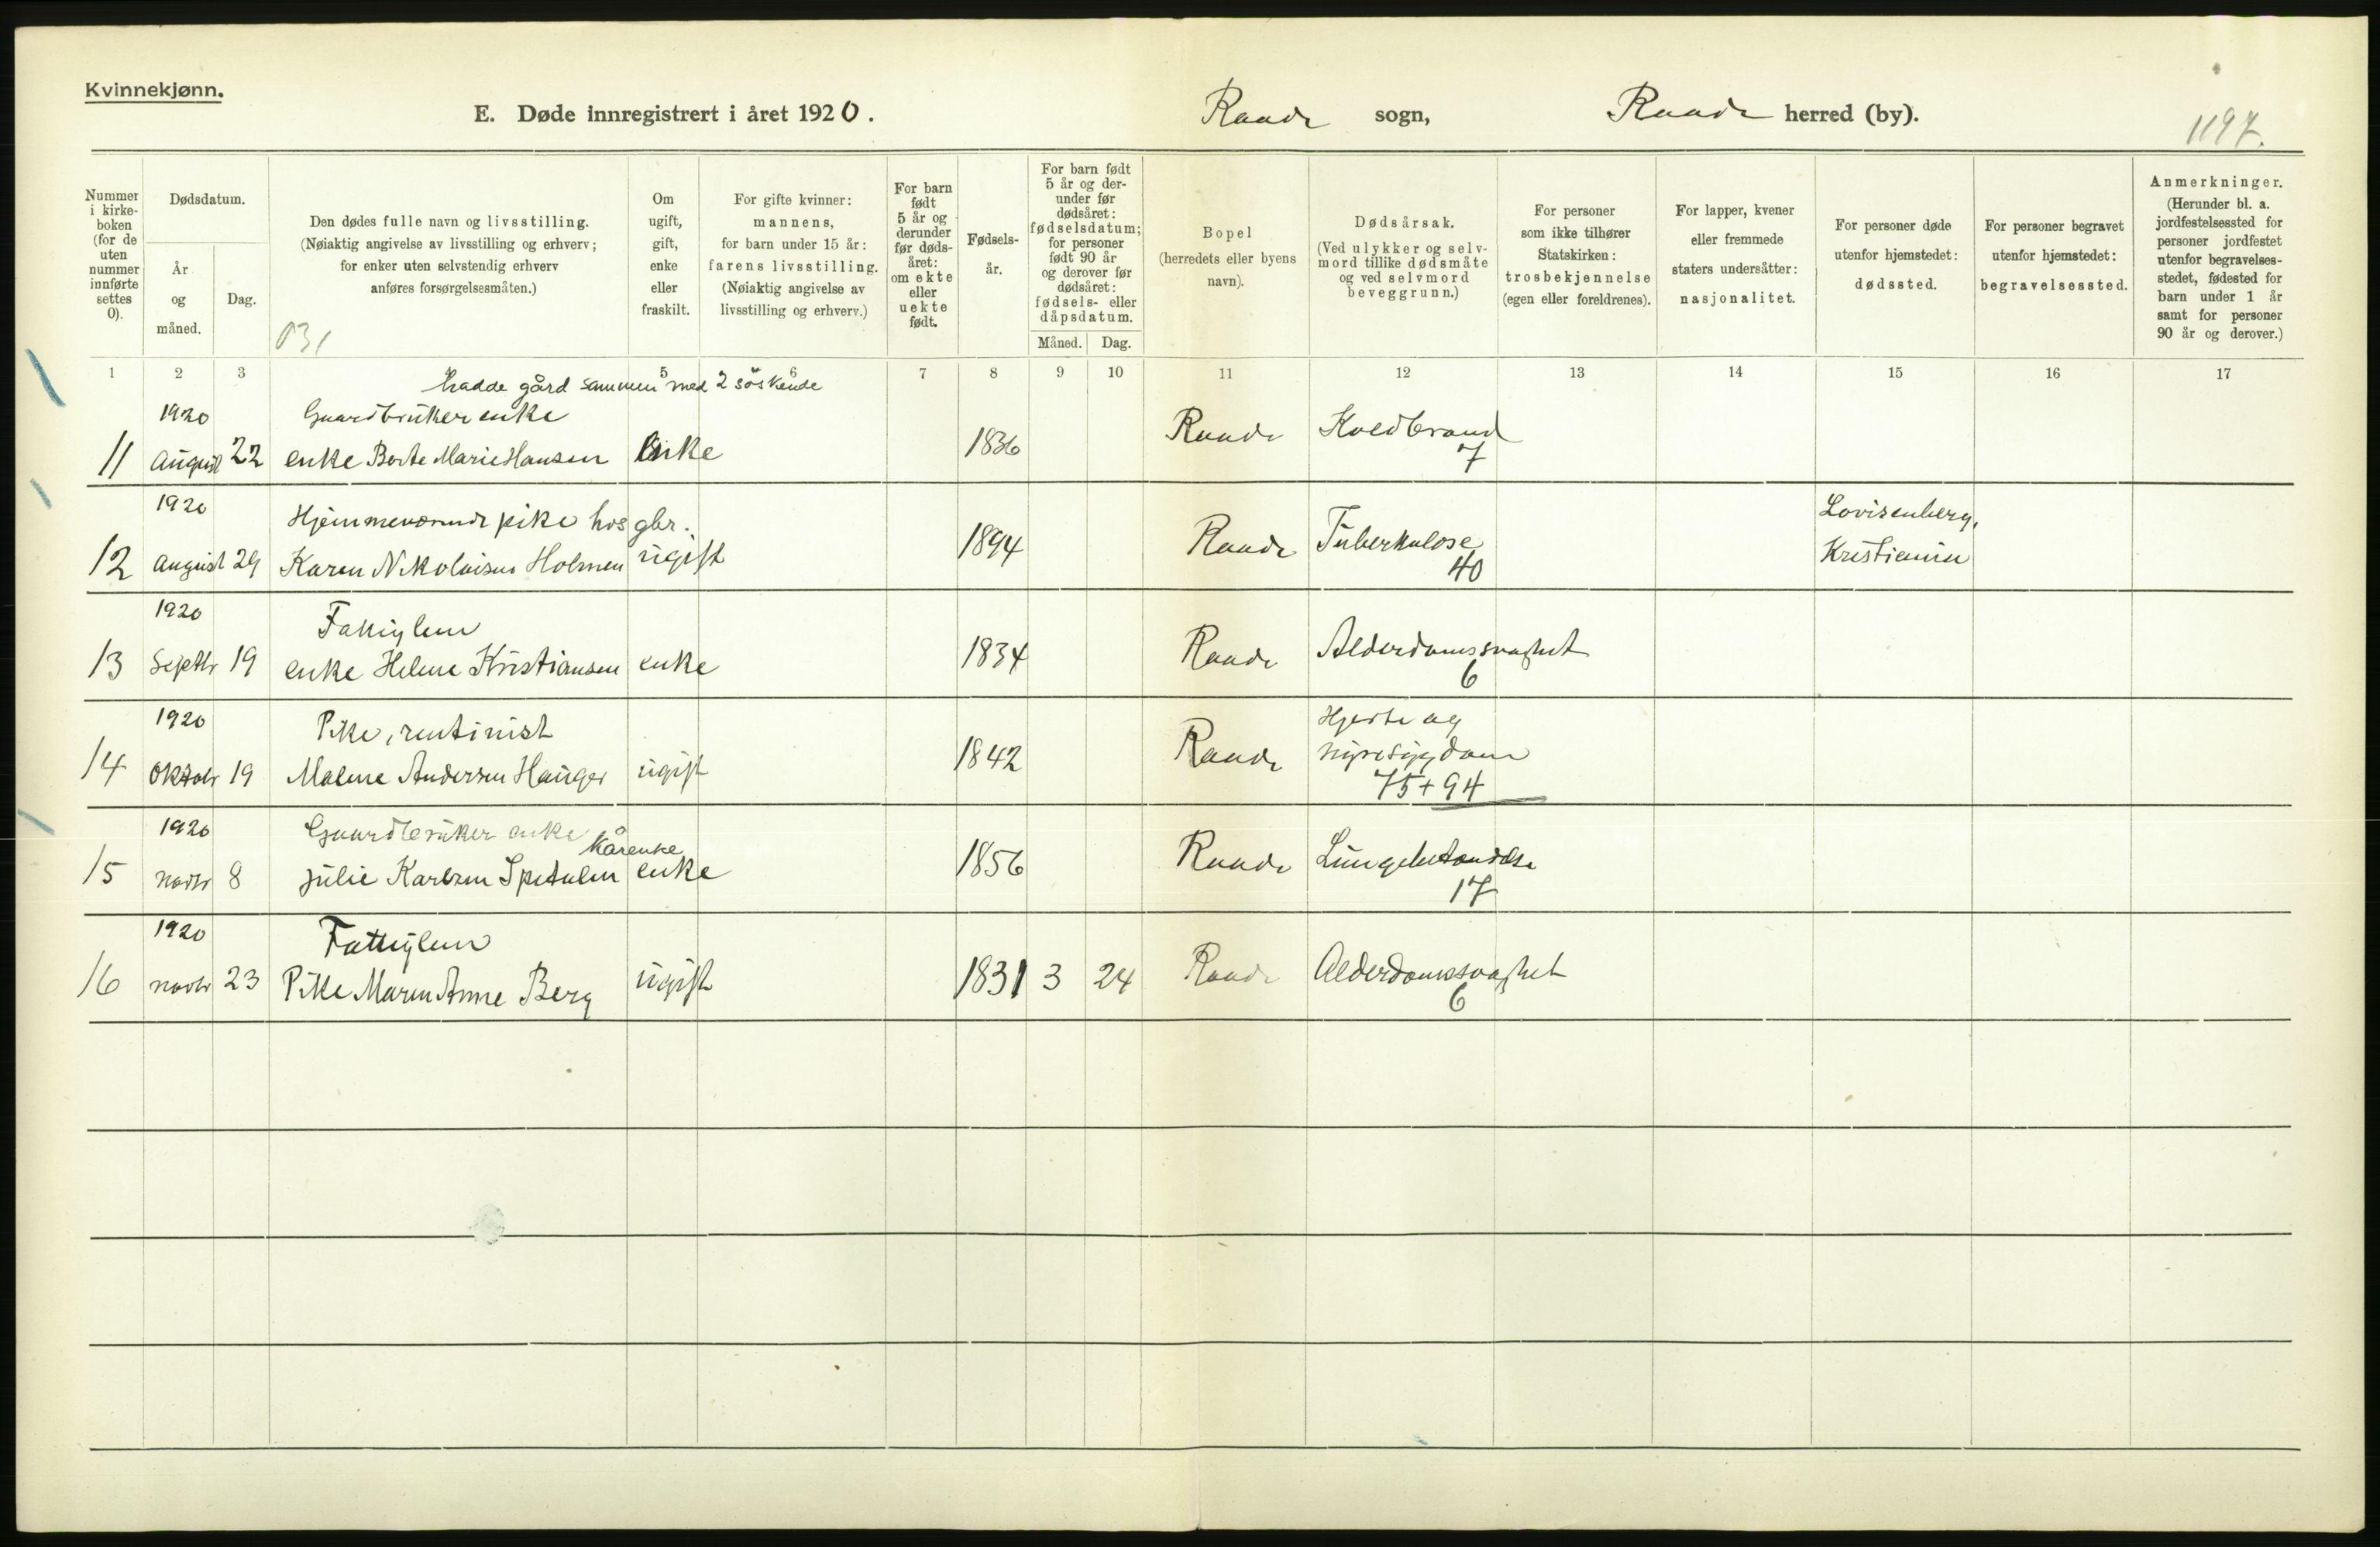 Kvinnekjønn.
E. Døde innregistrert i året 1920.
Raade sogn,
Raade herred (by).
1197.
Nummer i kirke- boken (for de uten nummer innførte settes 0).
Dødsdatum.
År og måned.
Dag.
Den dødes fulle navn og livsstilling.
(Nøiaktig angivelse av livsstilling og erhverv;
for enker uten selvstendig erhverv
anføres forsørgelsesmåten.)
031
Om ugift, gift, enke eller fraskilt.
For gifte kvinner:
mannens,
for barn under 15 år:
farens livsstilling.
(Nøiaktig angivelse av
livsstilling og erhverv.)
For barn født 5 år og derunder før døds- året: om ekte eller uekte født.
Fødsels- år.
For barn født 5 år og der- under før dødsåret: fødselsdatum; for personer født 90 år og derover før dødsåret: fødsels- eller dåpsdatum.
Måned.
Dag.
Bopel
(herredets eller byens
navn).
Dødsårsak.
(Ved ulykker og selv-
mord tillike dødsmåte
og ved selvmord
beveggrunn.)
For personer
som ikke tilhører
Statskirken:
trosbekjennelse
(egen eller foreldrenes).
For lapper, kvener
eller fremmede
staters undersåtter:
nasjonalitet.
For personer døde
utenfor hjemstedet:
dødssted.
For personer begravet
utenfor hjemstedet:
begravelsessted.
Anmerkninger.
(Herunder bl. a.
jordfestelsessted for
personer jordfestet
utenfor begravelses-
stedet, fødested for
barn under 1 år
samt for personer
90 år og derover.)
1 2 3 5 6 7 8 9 10 11 12 13 14 15 16 17
hadde gård sammen med 2 søskende
1920 Gaardbruker enke
11 August 22 enke Berte Marie Hansen Enke 1836 Raade Koldbrand
7
1920 Hjemmeværende pike hos gbr.
12 August 29 Karen Nikolaisen Holmen ugift 1894 Raade Tuberkulose Lovisenberg, Kristiania
40
1920 Fattiglem
13 Septbr 19 enke Helene Kristiansen enke 1834 Raade Alderdomssvaghet
6
1920 Pike, rentinist
14 Oktobr 19 Malene Andersen Hauger ugift 1842 Raade Hjerte og
nyresygdom
75+94
1920 Gaardbruker enke
kårenke
15 Novbr 8 Julie Karlsen Spetalen enke 1856 Raade Lungebetændelse
17
1920 Fattiglem
16 Novbr 23 Pike Maren Anne Berg ugift 1831 3 24 Raade Alderdomssvaghet
6